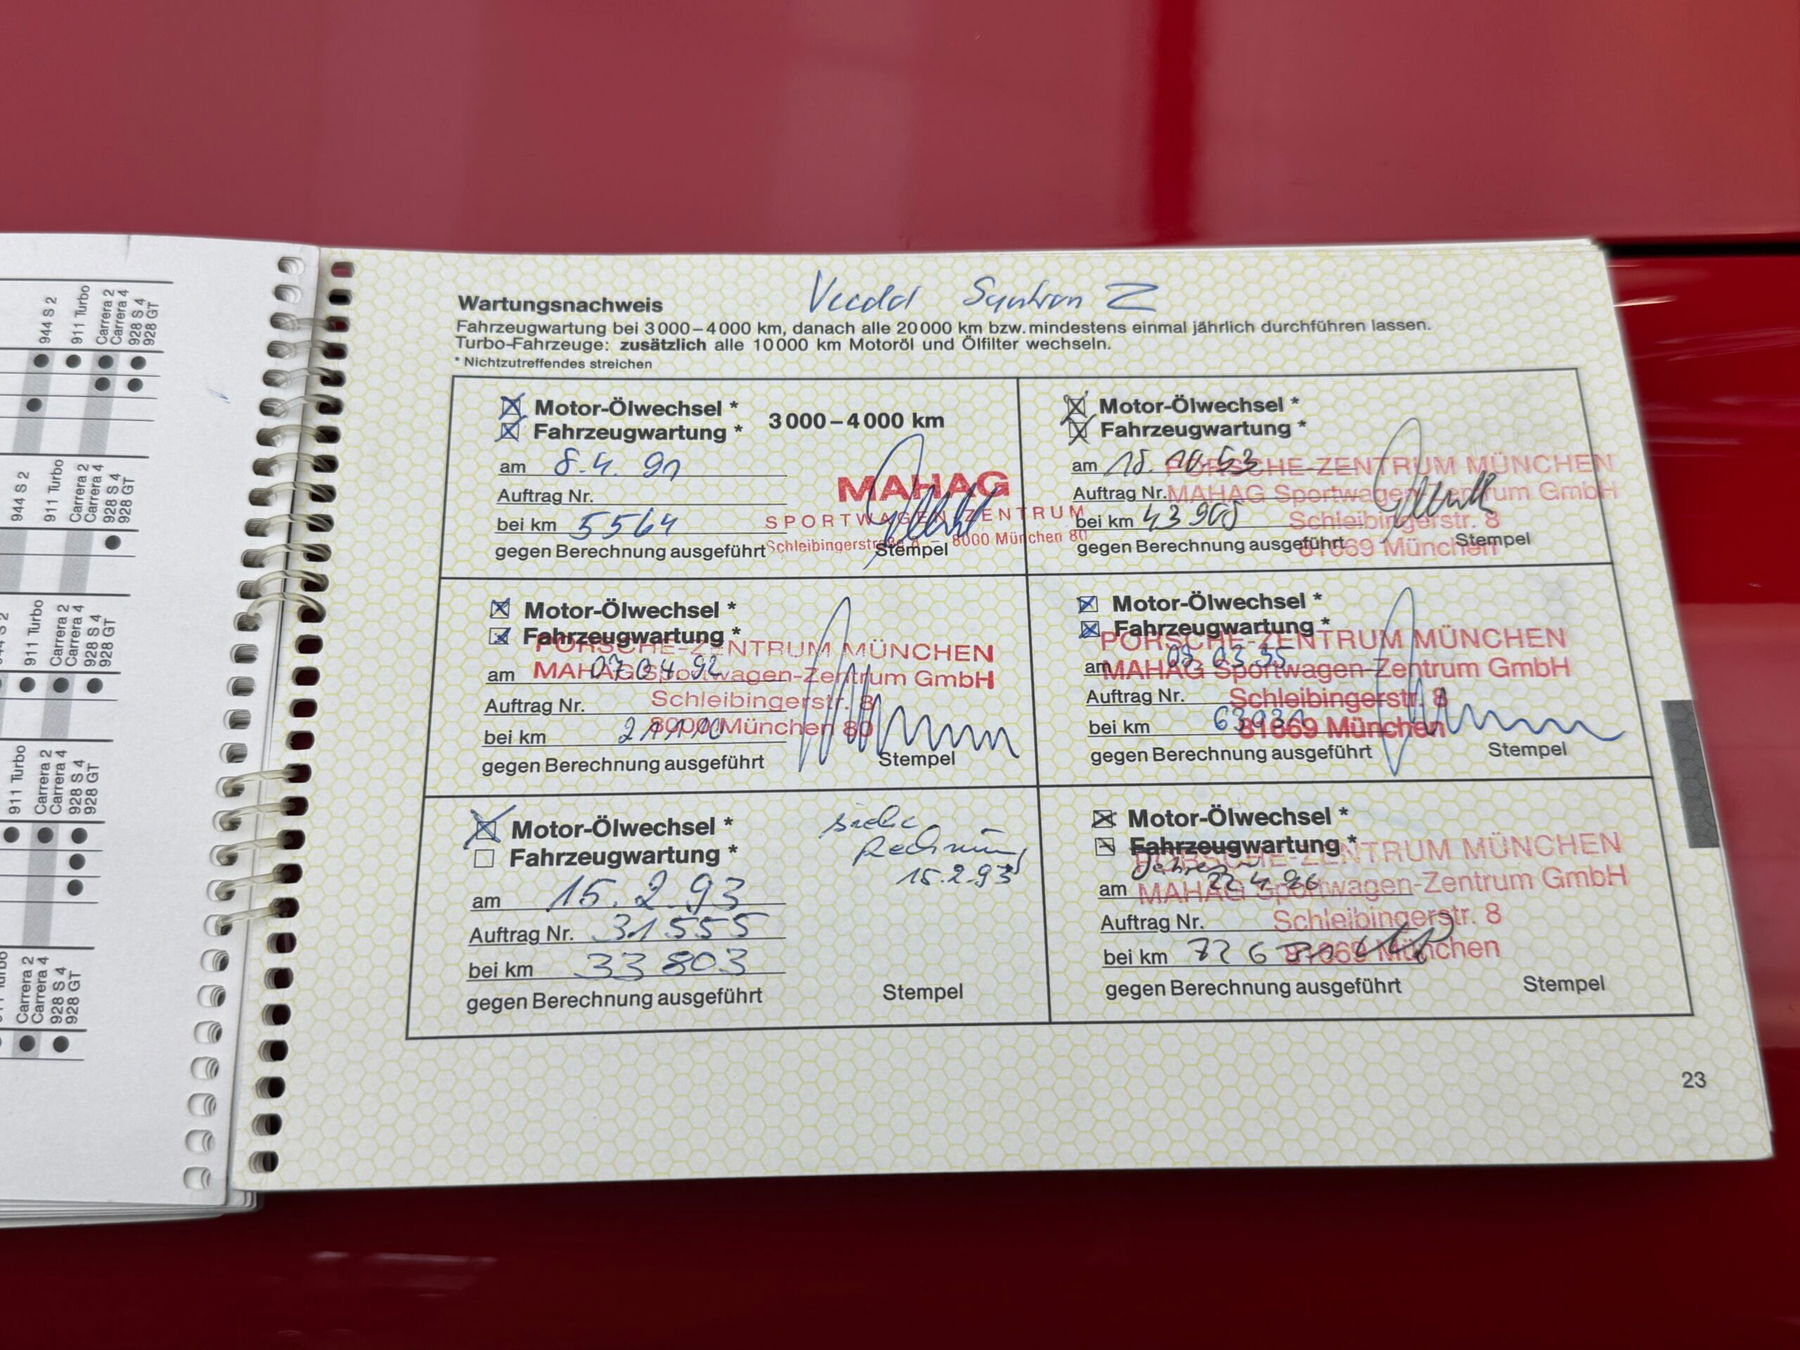 944 S 2
911 Turbo
Carrera 2
Carrera 4
928 S 4
928 GT
944 S 2
911 Turbo
Carrera 2
Carrera 4
928 S 4
928 GT
911 Turbo
Carrera 2
Carrera 4
928 S 4
928 GT
911 Turbo
Carrera 2
Carrera 4
928 S 4
928 GT
Carrera 2
Carrera 4
928 S 4
928 GT
Wartungsnachweis
Fahrzeugwartung bei 3 000 – 4 000 km, danach alle 20 000 km bzw. mindestens einmal jährlich durchführen lassen.
Turbo-Fahrzeuge: zusätzlich alle 10 000 km Motoröl und Ölfilter wechseln.
* Nichtzutreffendes streichen
Motor-Ölwechsel *
Fahrzeugwartung *
3 000 – 4 000 km
am 8.4.91
Auftrag Nr.
bei km 5564
gegen Berechnung ausgeführt
Stempel
MAHAG
SPORTWAGEN-ZENTRUM
8000 München 80
Motor-Ölwechsel *
Fahrzeugwartung *
am
Auftrag Nr.
bei km
gegen Berechnung ausgeführt
Stempel
PORSCHE-ZENTRUM MÜNCHEN
MAHAG Sportwagen-Zentrum GmbH
Schleibingerstr. 8
81669 München
Motor-Ölwechsel *
Fahrzeugwartung *
am 07.04.92
Auftrag Nr.
bei km
gegen Berechnung ausgeführt
Stempel
PORSCHE-ZENTRUM MÜNCHEN
MAHAG Sportwagen-Zentrum GmbH
Schleibingerstr. 8
8000 München 80
Motor-Ölwechsel *
Fahrzeugwartung *
am
Auftrag Nr.
bei km
gegen Berechnung ausgeführt
Stempel
PORSCHE-ZENTRUM MÜNCHEN
MAHAG Sportwagen-Zentrum GmbH
Schleibingerstr. 8
81669 München
Motor-Ölwechsel *
Fahrzeugwartung *
siehe
Rechnung
15.2.93
am 15.2.93
Auftrag Nr. 31555
bei km 33803
gegen Berechnung ausgeführt
Stempel
Motor-Ölwechsel *
Fahrzeugwartung *
am 22.4.96
Auftrag Nr.
bei km
gegen Berechnung ausgeführt
Stempel
PORSCHE-ZENTRUM MÜNCHEN
MAHAG Sportwagen-Zentrum GmbH
Schleibingerstr. 8
81669 München
23